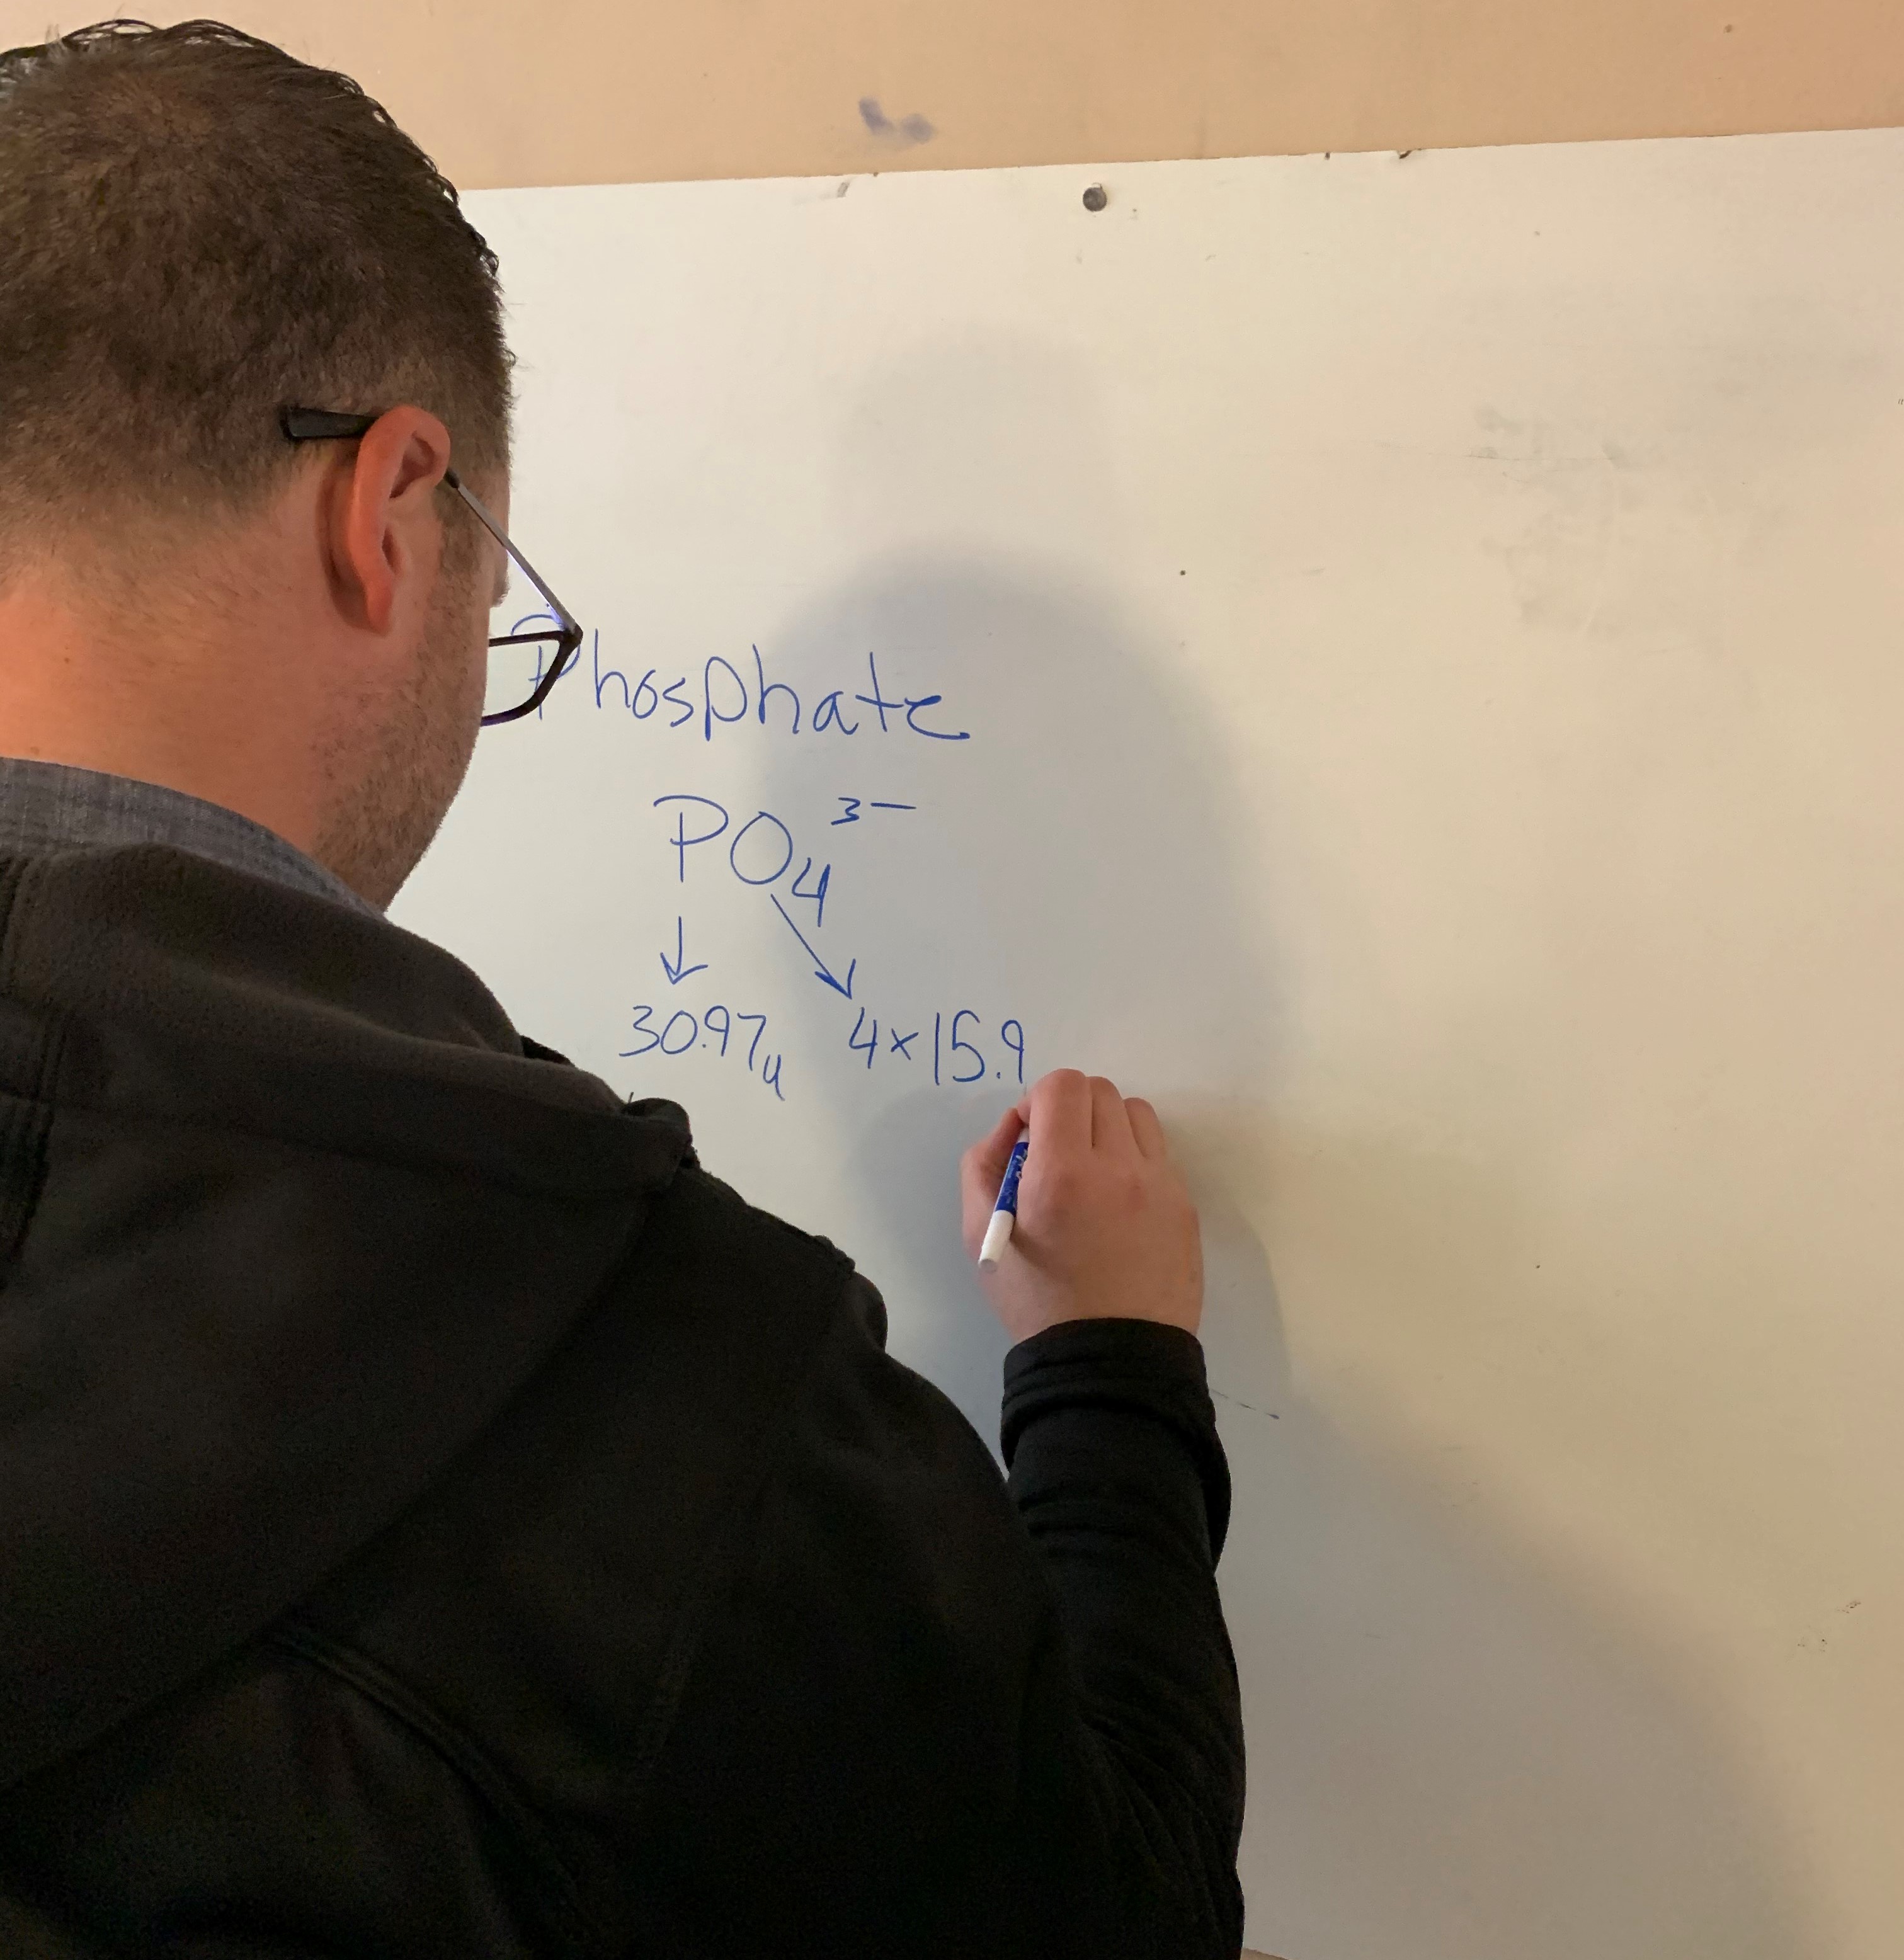 Phosphate
PO₄³⁻
30.97u 4×15.9